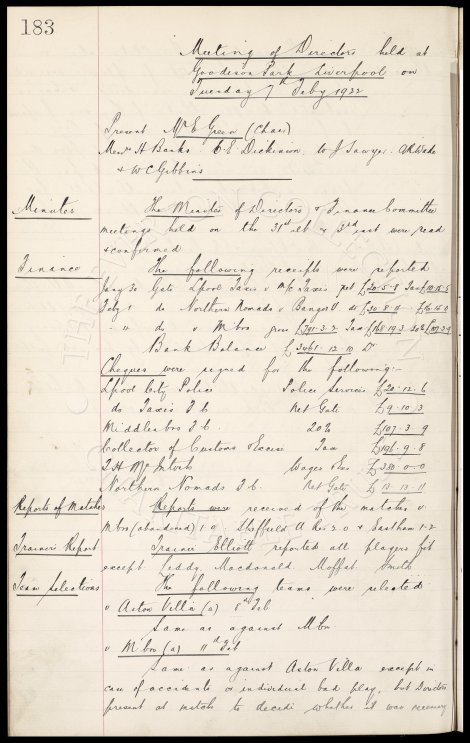 183
Meeting of Directors held at
Goodison Park Liverpool on
Tuesday 7th Feby 1922
Present Mr E Green (Chair)
Messrs H Banks C.E. Dickinson, W J Sawyer. A Wade
& W C Gibbins
Minutes
The Minutes of Directors & Finance Committee
meetings held on the 31st ult & 3rd inst were read
& confirmed
Finance
The following receipts were reported
Jany 30 Gate Lpool Taxis v M/c Taxis net £20.5.8 Tax
Feby 1 do Northern Nomads v Bangor do £30.8.11
" " do v M'bro gross £791.3.2 Tax £168.19.3 20% £107.3.9
Bank Balance £3461.12.10 Dr
Cheques were signed for the following:-
Lpool City Police Police Services £20.12.6
do Taxis F.C. Net Gate £9.10.3
Middlesbro F.C. 20% £107.3.9
Collector of Customs & Excise Tax £196.9.8
T.H. McIntosh Wages &c £350.0.0
Northern Nomads F.C. Net Gate £13.13.11
Reports of Matches
Reports were received of the matches v
M'bro (abandoned) 1.0. Sheffield U Res 2.0 & Eastham 1-2
Trainers Report
Trainer Elliott reported all players fit
except Leddy, Macdonald, Moffat, Smith
Team Selections
The following teams were selected
v Aston Villa (a) 8th Feb
Same as against Mbro
v M'bro (a) 11th Feb
Same as against Aston Villa except in
case of accidents or individual bad play, but Directors
present at match to decide whether it was necessary